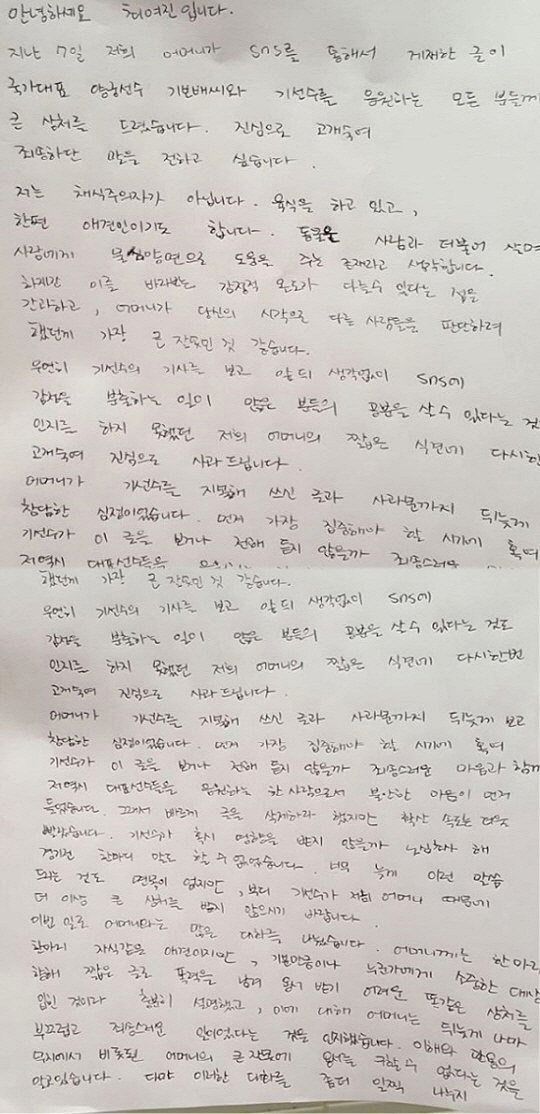 안녕하세요 최여진입니다.
지난 7일 저희 어머니가 SNS를 통해서 게재한 글이
국가대표 양궁선수 기보배씨와 기선수를 응원하는 모든 분들께
큰 상처를 드렸습니다. 진심으로 고개숙여
죄송하단 말을 전하고 싶습니다.
저는 채식주의자가 아닙니다. 육식을 하고 있고,
한편 애견인이기도 합니다. 동물은 사람과 더불어 살며
사람에게 물심양면으로 도움을 주는 존재라고 생각합니다.
하지만 이를 바라보는 감정적 온도가 다를수 있다는 점을
간과하고, 어머니가 당신의 시각으로 다른 사람들을 판단하려
했던게 가장 큰 잘못인 것 같습니다.
우연히 기선수의 기사를 보고 앞뒤 생각없이 SNS에
감정을 분출하는 일이 많은 분들의 공분을 살 수 있다는 것
인지조 하지 못했던 저희 어머니의 짧은 식견에 다시한
고개숙여 진심으로 사과드립니다.
어머니가 기선수를 지목해 쓰신 글과 사과문까지 뒤늦게
참담한 심정이었습니다. 먼저 가장 집중해야 할 시기에 혹여
기선수가 이 글을 보거나 전해 듣지 않을까 죄송스러운
저역시 대표선수들을
했던게 가장 큰 잘못인 것 같습니다.
우연히 기선수의 기사를 보고 앞뒤 생각없이 SNS에
감정을 분출하는 일이 많은 분들의 공분을 살 수 있다는 것도
인지조 하지 못했던 저희 어머니의 짧은 식견에 다시한번
고개숙여 진심으로 사과드립니다.
어머니가 기선수를 지목해 쓰신 글과 사과문까지 뒤늦게 보고
참담한 심정이었습니다. 먼저 가장 집중해야 할 시기에 혹여
기선수가 이 글을 보거나 전해 듣지 않을까 죄송스러운 마음과 함께
저역시 대표선수들을 응원하는 한 사람으로서 불안한 마음이 먼저
들었습니다. 그래서 바르게 글을 삭제하라 했지만 확산 속도는 더욱
빨랐습니다. 기선수가 혹시 영향을 받지 않을까 노심초사 해
경기전 한마디 말도 할 수 없었습니다. 너무 늦게 이런 말씀
되는 것도 면목이 없지만, 부디 기선수가 저희 어머니 때문에
더 이상 큰 상처를 받지 않으시기 바랍니다.
이번 일로 어머니와는 많은 대화를 나눴습니다. 어머니께는 한마리
한마리 자식같은 애견이지만, 기보배선수나 누군가에게 소중한 대상
향해 짧은 글로 폭력을 남겨 용서 받기 어려운 똑같은 상처를
입힌 것이라 충분히 설명했고, 이에 대해 어머니는 뒤늦게 나마
부끄럽고 죄송스러운 일이었다는 것을 인지했습니다. 이해와 관용의
무지에서 비롯된 어머니의 큰 잘못에 용서를 구할 수 없다는 것을
알고있습니다. 다만 이러한 대화를 좀더 일찍 나누지